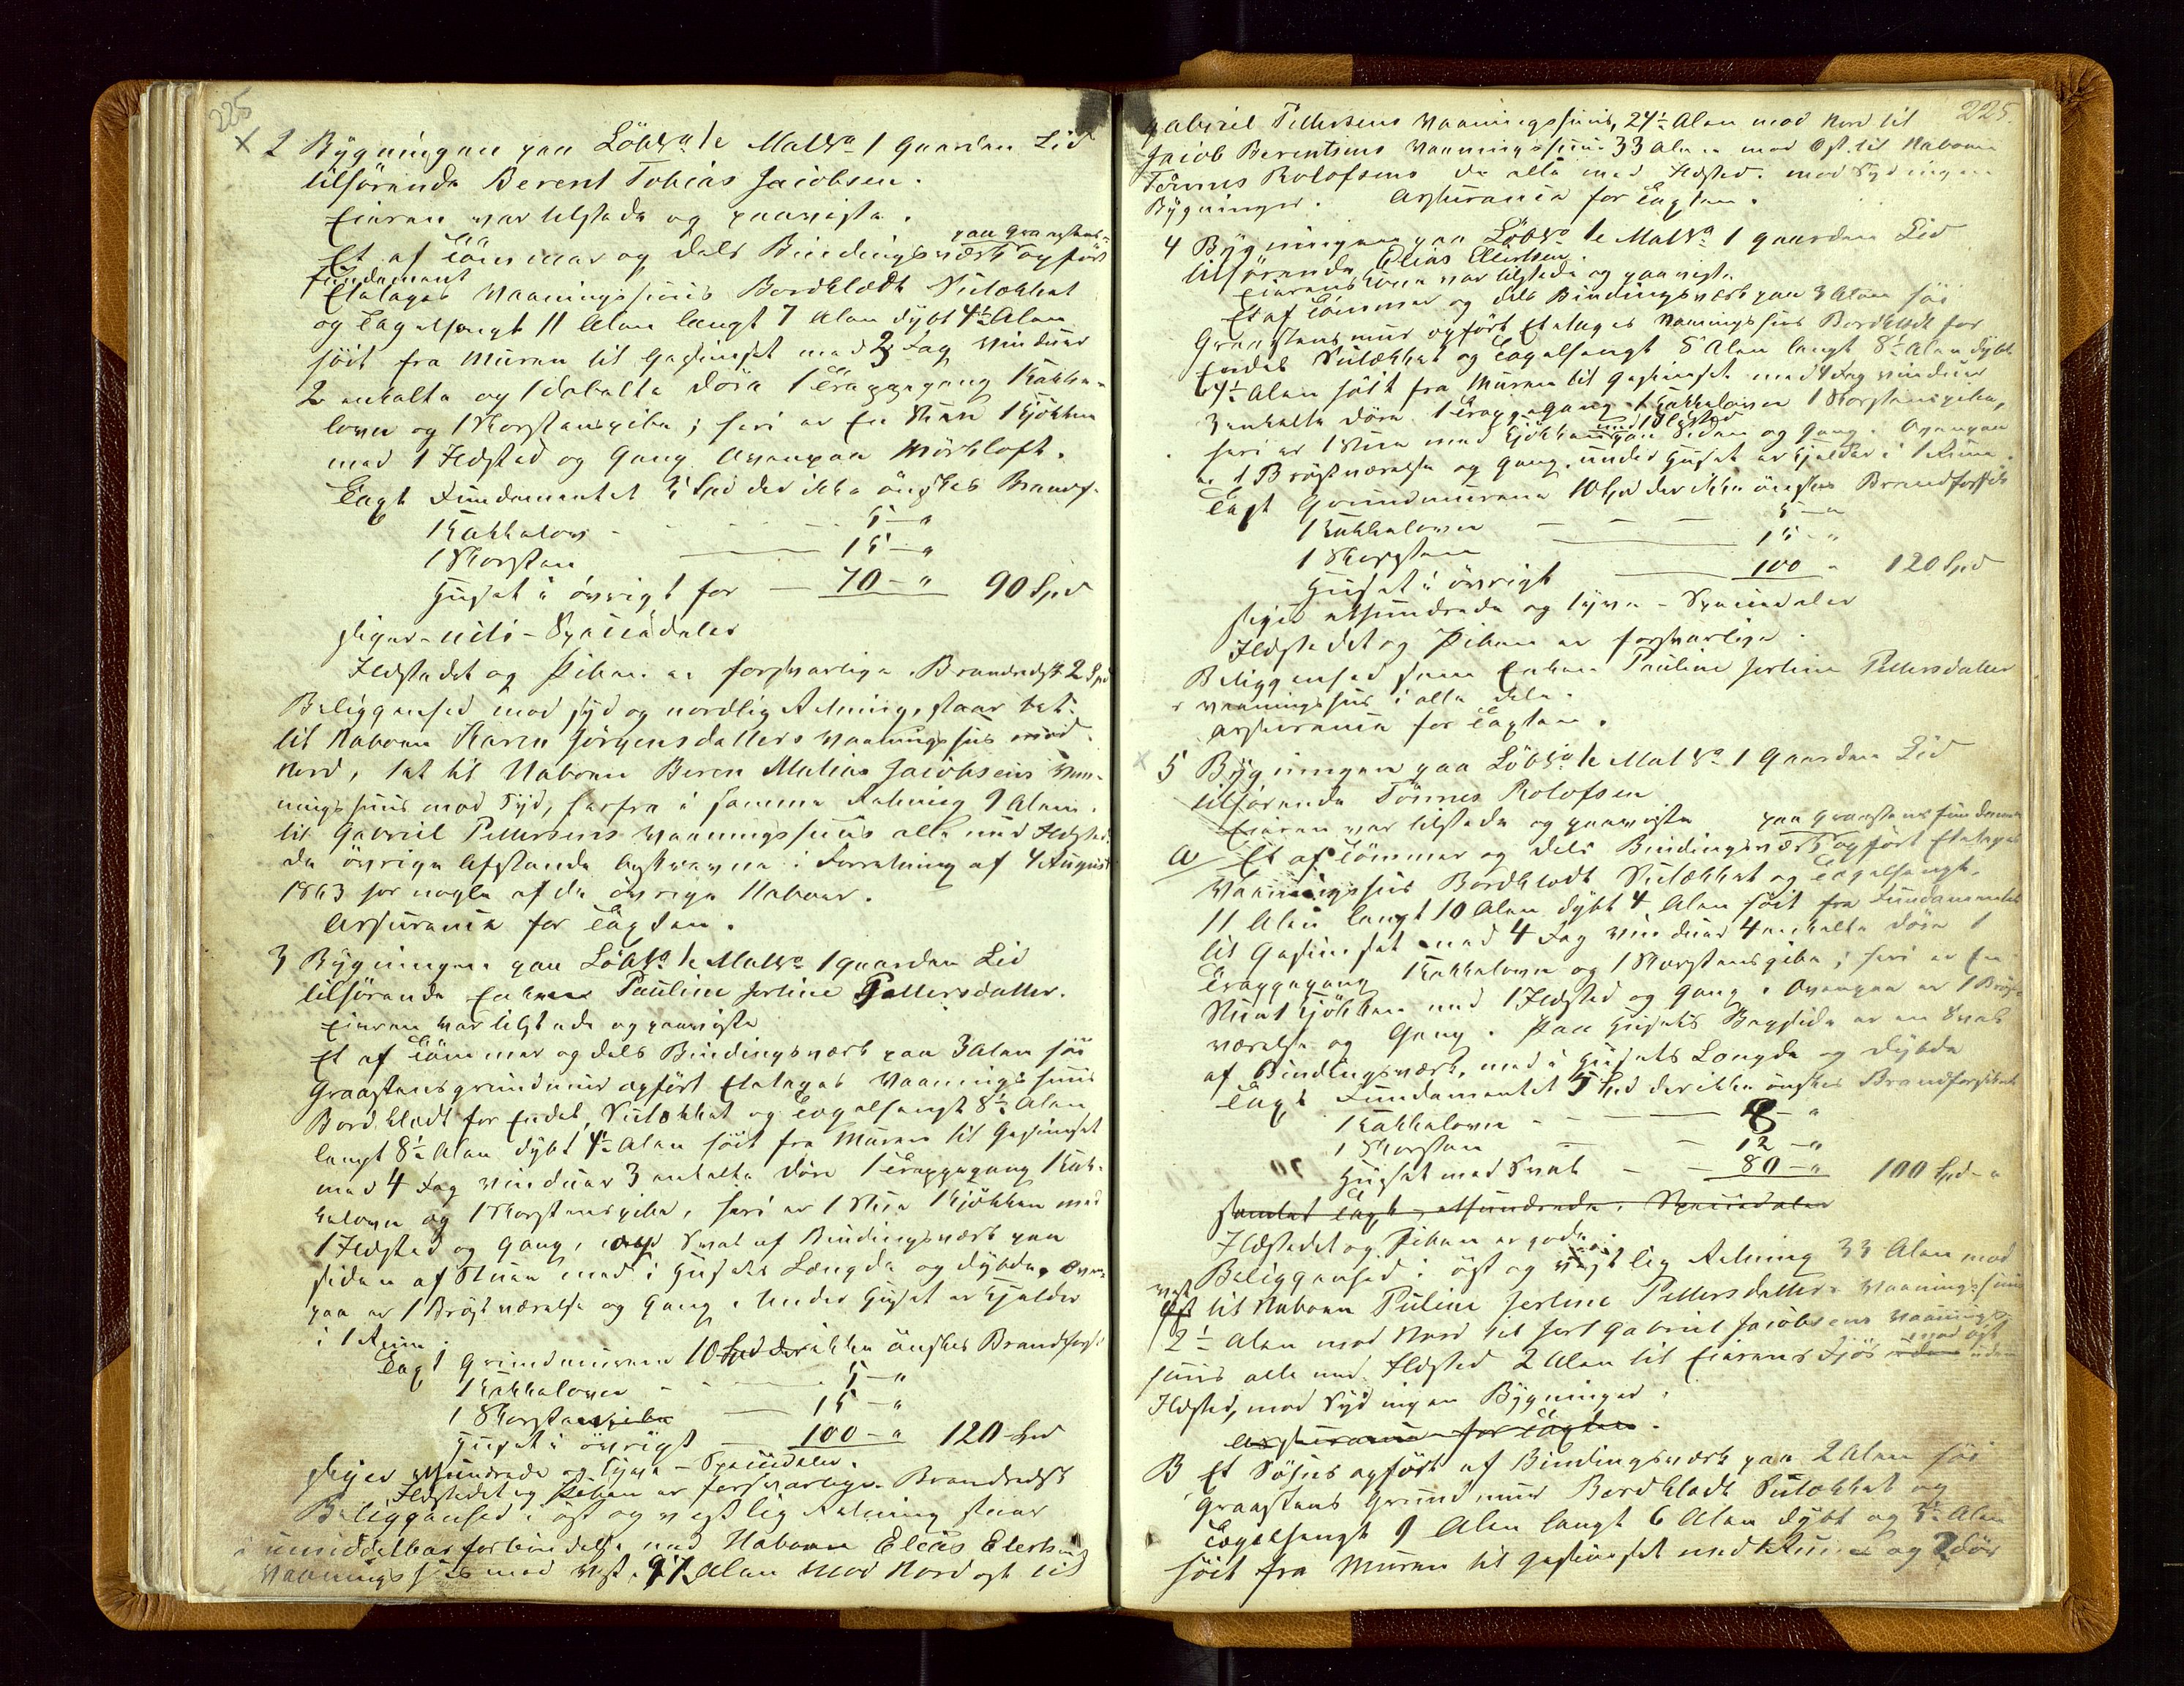 225
× 2 Bygningen paa Löbb№ 1e Mat№ 1 Gaarden Lid
tilhörende Berent Tobias Jacobsen.
Eieren var tilstede og paaviste.
Et af Tömmer og dels Bindingsværk paa Graastens- opfört
Fundament
Etetages Vaaningshuus Bordklædt Uelukket
og Tagelhængt 11 Alen langt 7 Alen dybt 4½ Alen
höit fra Muren til Gesimset med 3 Fag Vinduer
2 enkelte og 1 dobelte Döre 1 Trappegang 1 Kakke-
lovn og 1 Skorstenspibe; heri er en Stue 1 Kjökken
med 1 Ildsted og Gang Ovenpaa Mörkloft.
Taxt Fundamentet 5 Spd der ikke önskes Brandf.
1 Kakkelovn - 5 - "
1 Skorsten — 15 - "
Huset i övrigt for — 70 - " 90 Spd
siger - niti - Speciedaler
Ildstedet og Piben er forsvarlige. Brandredsk 2 Spd
Beliggenhed mod syd og nordlig Retning, staar tæt
til Naboen Karen Jörgensdatters Vaaningshuus mod
Nord, tæt til Naboen Beren Matias Jacobsens Vaa-
ningshuus mod Syd, herfra i samme Retning 9 Alen
til Gabriel Pettersens Vaaningshuus alle med Ildsted.
de övrige Afstande beskrevne i Forretning af 4 August
1863 for nogle af de övrige Naboer.
Assurance for Taxten.
3 Bygningen paa Löbb№ 1e Mat№ 1 Gaarden Lid
tilhörende Enken Pauline Jertine Pettersdatter.
Eieren var tilstede og paaviste
Et af Tömmer og dels Bindingsværk paa 3 Alen höi
Graastensgrundmur opfört Etetages Vaaningshuus
Bordklædt for Endet, Uelukket og Tagelhængt 8½ Alen
langt 8½ Alen dybt 4½ Alen höit fra Muren til Gesimset
med 4 Fag Vinduer 3 enkelte Döre 1 Trappegang 1 Kak-
kelovn og 1 Skorstenspibe, heri er 1 Stue 1 Kjökken med
1 Ildsted og Gang, Sval af Bindingsværk paa
siden af Stuen med i Husets Længde og dybde. Oven-
paa er 1 Bröstværelse og Gang. Under Huset er Kjelder
i 1 Rum.
Taxt Grundmuren 10 Spd der ikke önskes Brandfors:
1 Kakkelovn - 5 - "
1 Skorstenspibe — 15 - "
Huset i övrigt — 100 - " 120 Spd
siger ethundrede og Tyve - Speciedaler.
Ildstedet og Piben er forsvarlige. Brandredsk
Beliggenhed i öst og vestlig Retning staar
i umiddelbar forbindelse med Naboen Elias Elertsens
Vaaningshuus mod Vest. 9½ Alen mod Nord ost til
225.
Gabriel Pettersens Vaaningshuus, 24½ Alen mod Nord til
Jacob Berentsens Vaaningshuus 33 Alen mod Ost. til Naboen
Tönnes Rolofsens da alle med Ildsted. mod Syd ingen
Bygninger. Assurance for Taxten.
4 Bygningen paa Löbb№ 1e Mat№ 1 Gaarden Lid
tilhörende Elias Elertsen.
Eierens Kone var tilstede og paaviste.
Et af Tömmer og dels Bindingsværk paa 3 Alen höi
Graastensmur opfört Etetages Vaaningshuus Bordklædt for
Endet Uelukket og Tagelhængt 8 Alen langt 8½ Alen dybt
4½ Alen höit fra Muren til Gesimset med 4 Fag Vinduer
3 enkelte Döre 1 Trappegang 1 Kakkelovn 1 Skorstenspibe,
heri er 1 Stue med Kjökken med 1 Ildsted paa Siden og Gang. Ovenpaa
er 1 Bröstværelse og Gang. under Huset er Kjelder i 1 Rum.
Taxt Grundmuren 10 Spd der ikke önskes Brandforsik
1 Kakkelovn — 5 - "
1 Skorsten — 15 - "
Huset i övrigt — 100 - " 120 Spd
siger ethundrede og tyve - Speciedaler
Ildstedet og Piben er forsvarlige.
Beliggenhed som Enken Pauline Jertine Pettersdatter
s Vaaningshuus i alle dele.
Assurance for Taxten.
× 5 Bygningen paa Löbb№ 1e Mat№ 1 Gaarden Lid
tilhörende Tönnes Rolofsen
Eieren var tilstede og paaviste paa Graastens fundament
A Et af Tömmer og dels Bindingsværk opfört Etetages
Vaaningshuus Bordklædt Uelukket og Tagelhængt.
11 Alen langt 10 Alen dybt 4 Alen höit fra Fundamentet
til Gesimset med 4 Fag Vinduer 4 enkelte Döre 1
Trappegang 1 Kakkelovn og 1 Skorstenspibe; heri er En
Stue 1 Kjökken med 1 Ildsted og Gang. Ovenpaa er 1 Bröst-
værelse og Gang. Paa Husets Bagside er en Sval
af Bindingsværk, med i Husets Længde og dybde
Taxt Fundamentet 5 Spd der ikke önskes Brandforsikret
1 Kakkelovn - — 8 - "
1 Skorsten — 12 - "
Huset med Sval — 80 - " 100 Spd - "
samlet Taxt, ethundrede. Speciedaler
Ildstedet og Piben er gode.
Beliggenhed i öst og vestlig Retning 33 Alen mod
vest
Öst til Naboen Puline Jertine Pettersdatters Vaaningshuus
2½ Alen mod Nord til Jert Gabriel Jacobsens Vaanings-
huus alle med Ildsted 2 Alen til Eierens Fjös mod öst uden
Ildsted, mod Syd ingen Bygninger.
Assurance for Taxten.
B Et Söhus opfört af Bindingsværk paa 2 Alen höi
Graastens Grundmur Bordklædt Uelukket og
Tagelhængt 9 Alen langt 6 Alen dybt og 3½ Alen
höit fra Muren til Gesimset med Rum og 2 dör